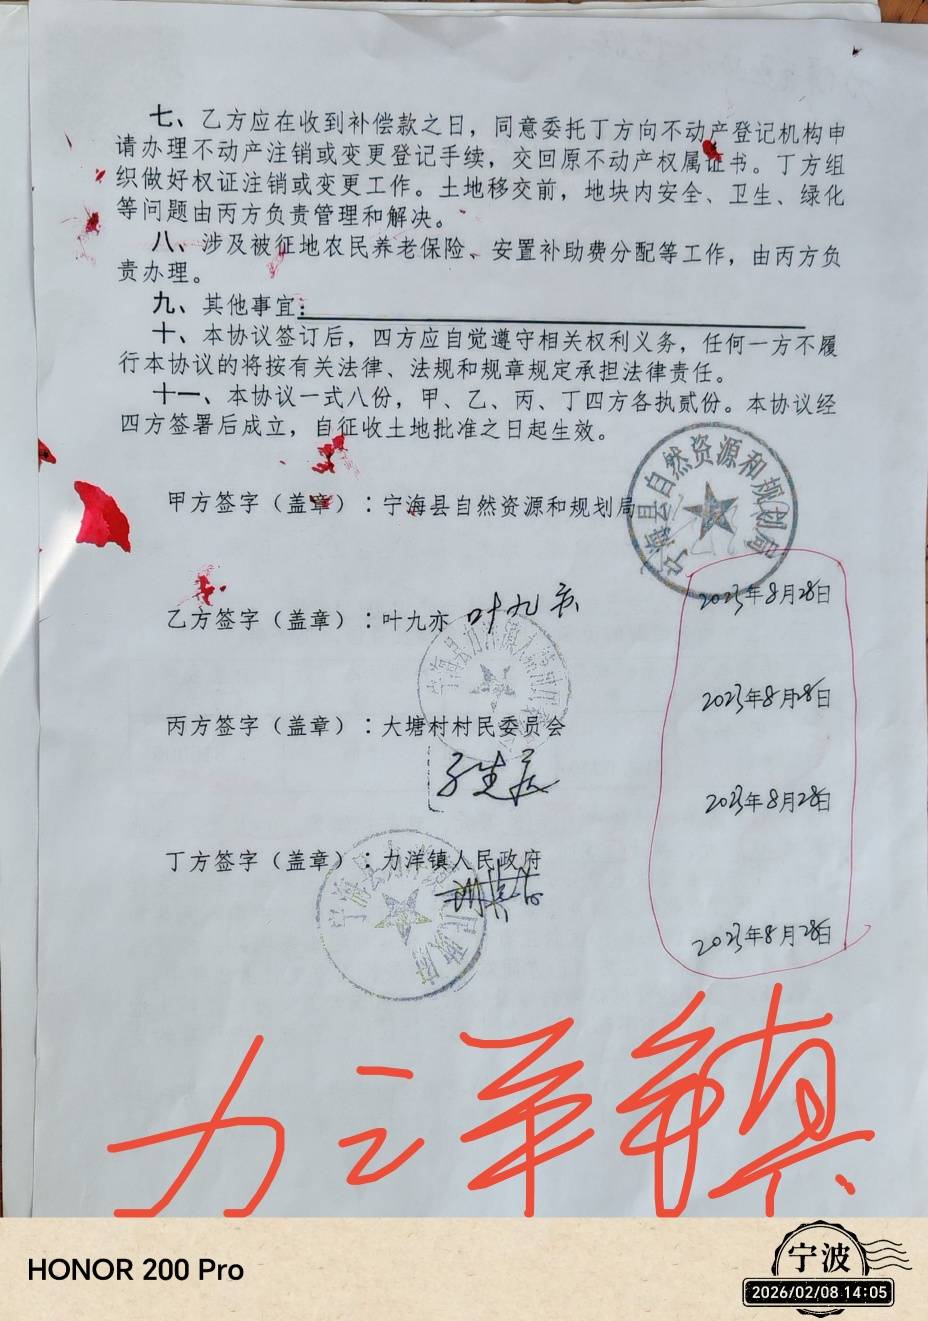 七、乙方应在收到补偿款之日，同意委托丁方向不动产登记机构申
请办理不动产注销或变更登记手续，交回原不动产权属证书。丁方组
织做好权证注销或变更工作。土地移交前，地块内安全、卫生、绿化
等问题由丙方负责管理和解决。
八、涉及被征地农民养老保险、安置补助费分配等工作，由丙方负
责办理。
九、其他事宜：
十、本协议签订后，四方应自觉遵守相关权利义务，任何一方不履
行本协议的将按有关法律、法规和规章规定承担法律责任。
十一、本协议一式八份，甲、乙、丙、丁四方各执贰份。本协议经
四方签署后成立，自征收土地批准之日起生效。
宁海县自然资源和规划局
甲方签字（盖章）：宁海县自然资源和规划局
2023年8月28日
乙方签字（盖章）：叶九亦 叶九亦
2023年8月28日
丙方签字（盖章）：大塘村村民委员会
2023年8月28日
丁方签字（盖章）：力洋镇人民政府
2023年8月28日
力洋镇
HONOR 200 Pro
宁波
2026/02/08 14:05